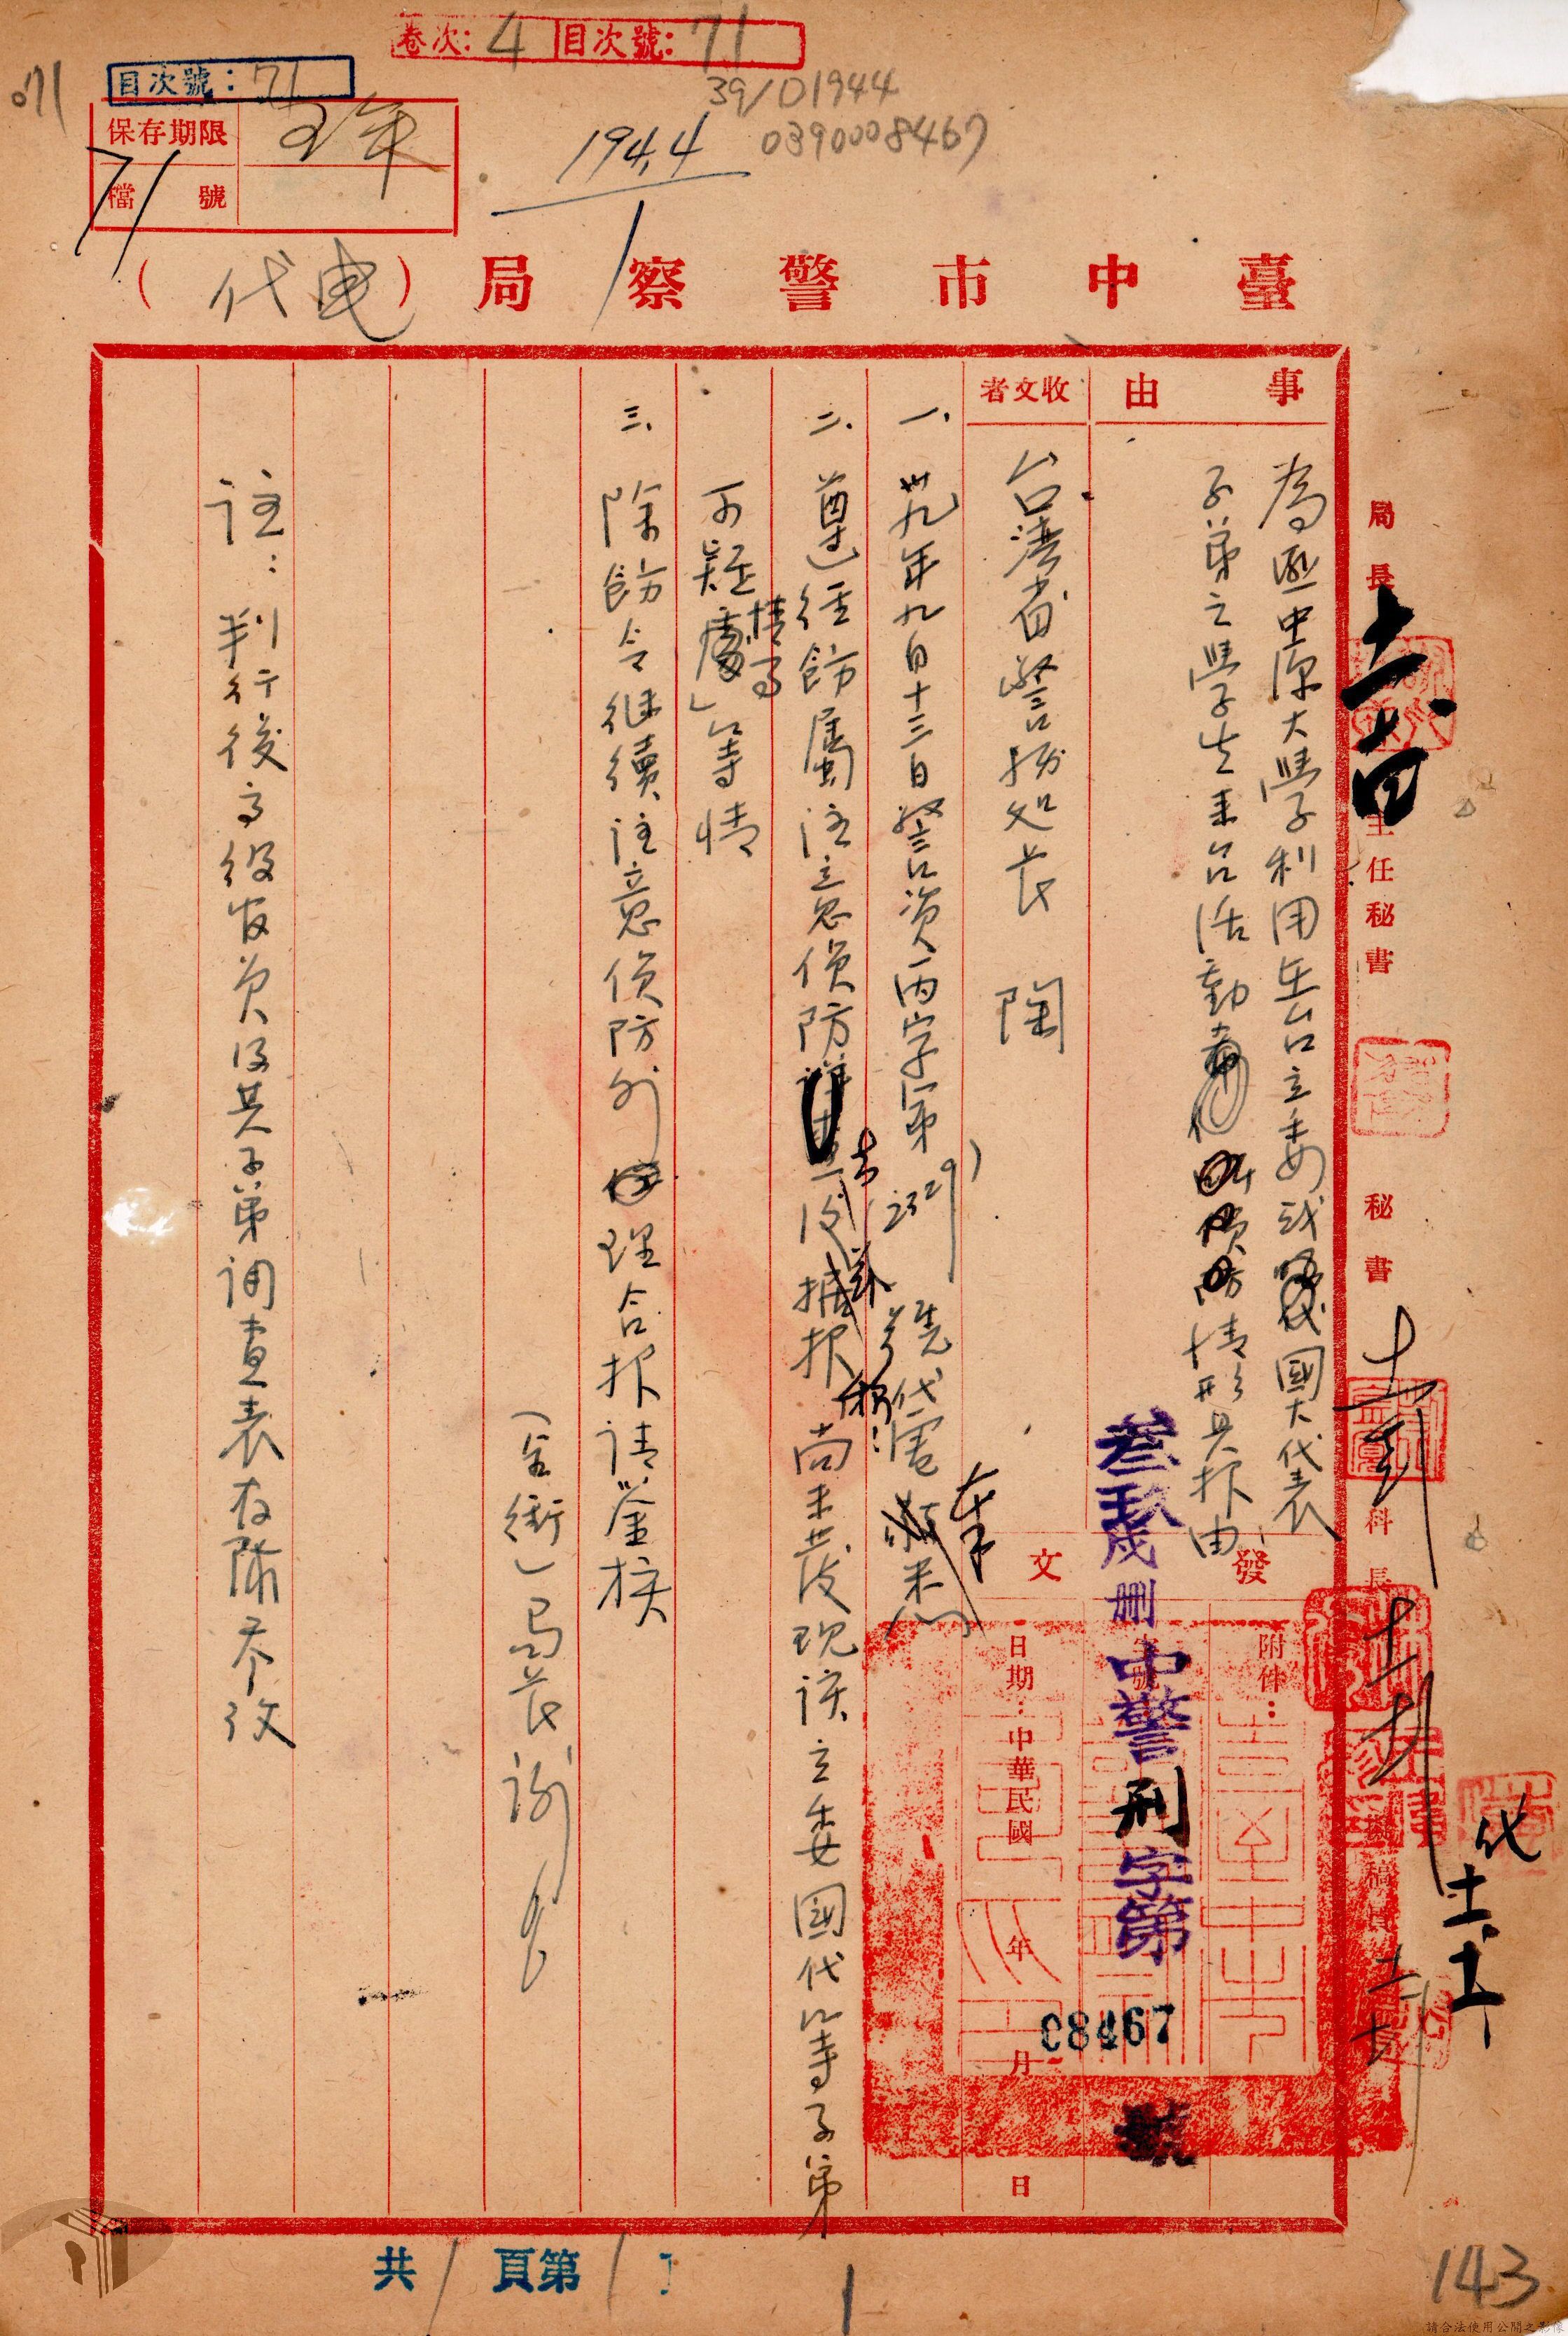 卷次：4 目次號：71
目次號：71
071
39/D1944
0390008467
194.4
1
保存期限 五年
檔號
71
臺中市警察局（代電）
事由
為匪中原大學利用在台立委或國大代表
子弟之學生來台活動 情形具報由
收文者
台灣省警務处长 陶
發文
附件：
號
日期：中華民國 年 月 日
叁玖戌刪中警刑字第 08467 號
一、卅九年九月十三日警資丙字第2329號代電奉悉
二、遵經飭屬注意偵防 去後 茲據報稱：尚未发现該立委國代等子弟
可疑情事」等情
三、除飭令继續注意偵防外理合报请鉴核
（全銜）局长 謝
註：判行後 级 员及其子弟調查表存隊參攷
局長
主任秘書
秘書
科長
擬稿員
代
共1頁第1頁
1
143
請合法使用公開之影像